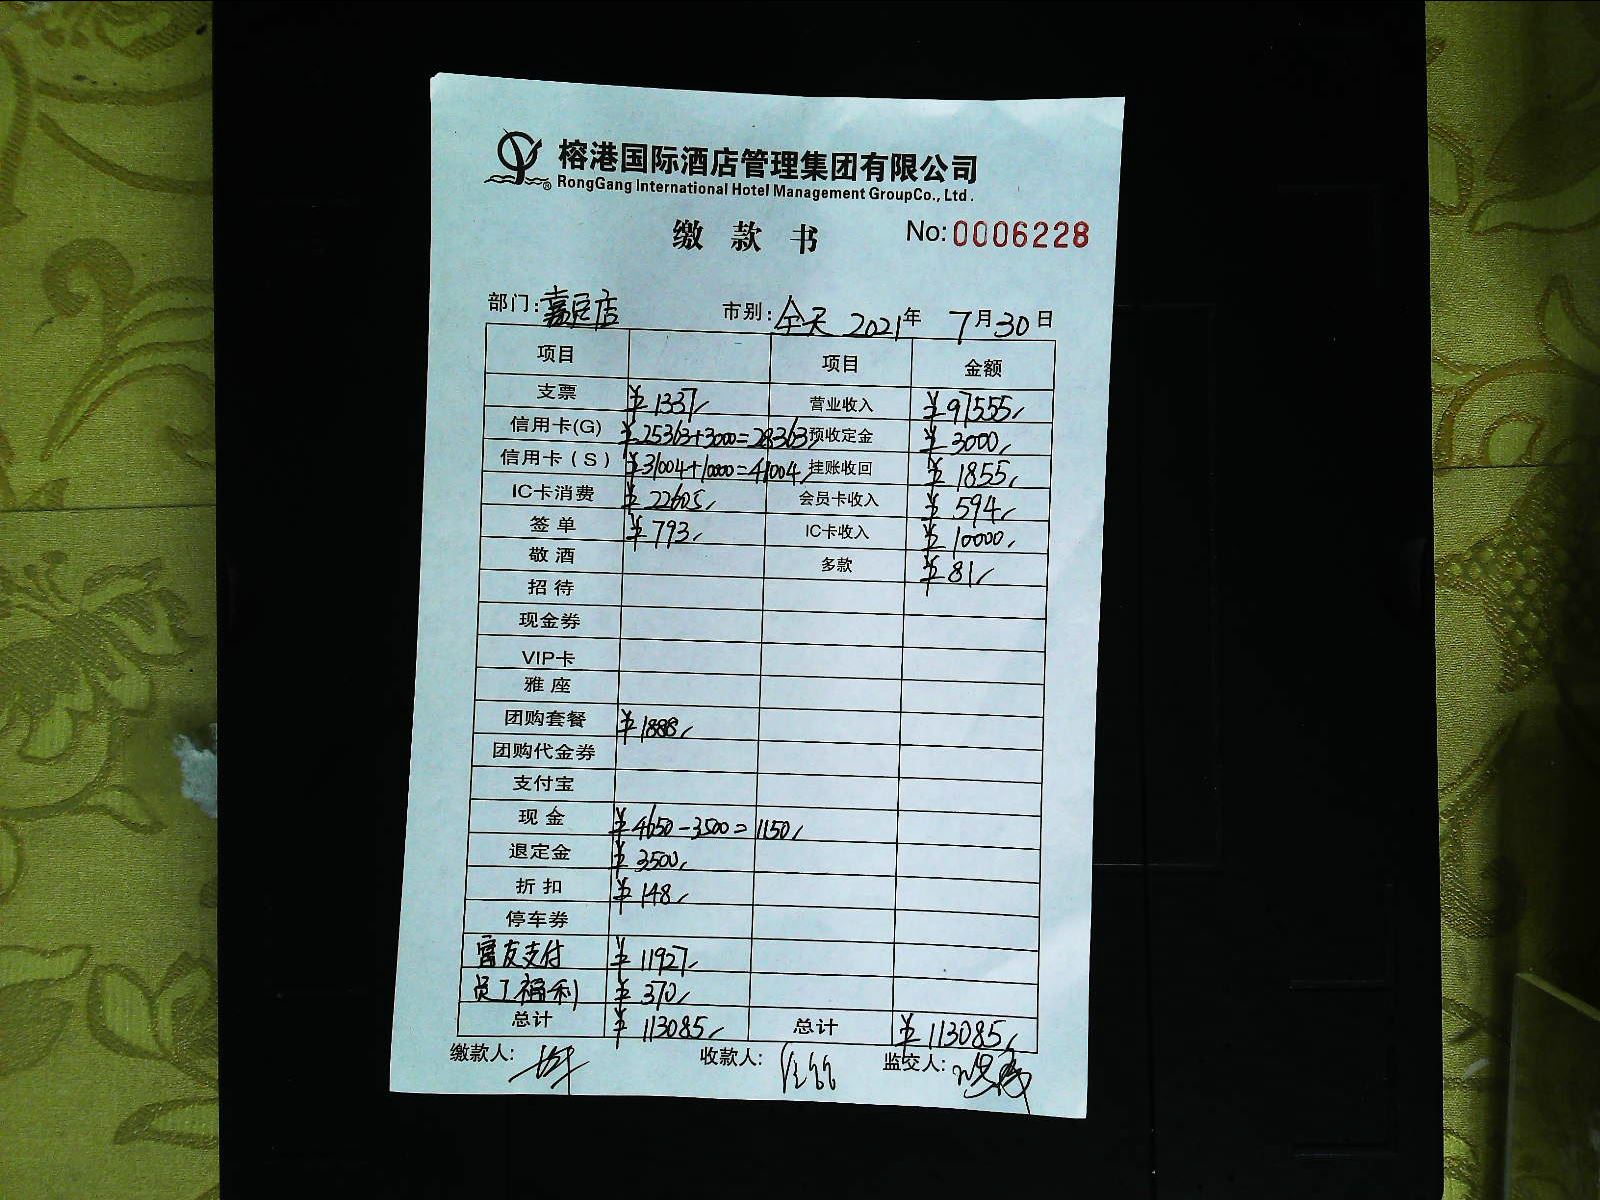 榕港国际酒店管理集团有限公司
RongGang International Hotel Management GroupCo., Ltd.
缴款书 No:0006228
部门:嘉定店 市别:全天 2021年 7月30日
项目 项目 金额
支票 ¥1337 营业收入 ¥97555
信用卡(G) ¥25363+3000=28363 预收定金 ¥3000
信用卡(S) ¥31004+10000=41004 挂账收回 ¥1855
IC卡消费 ¥22605 会员卡收入 ¥594
签单 ¥793 IC卡收入 ¥10000
敬酒 多款 ¥81
招待
现金券
VIP卡
雅座
团购套餐 ¥1888
团购代金券
支付宝
现金 ¥4650-3500=1150
退定金 ¥3500
折扣 ¥148
停车券
富友支付 ¥11927
员工福利 ¥370
总计 ¥113085 总计 ¥113085
缴款人: 收款人: 监交人: